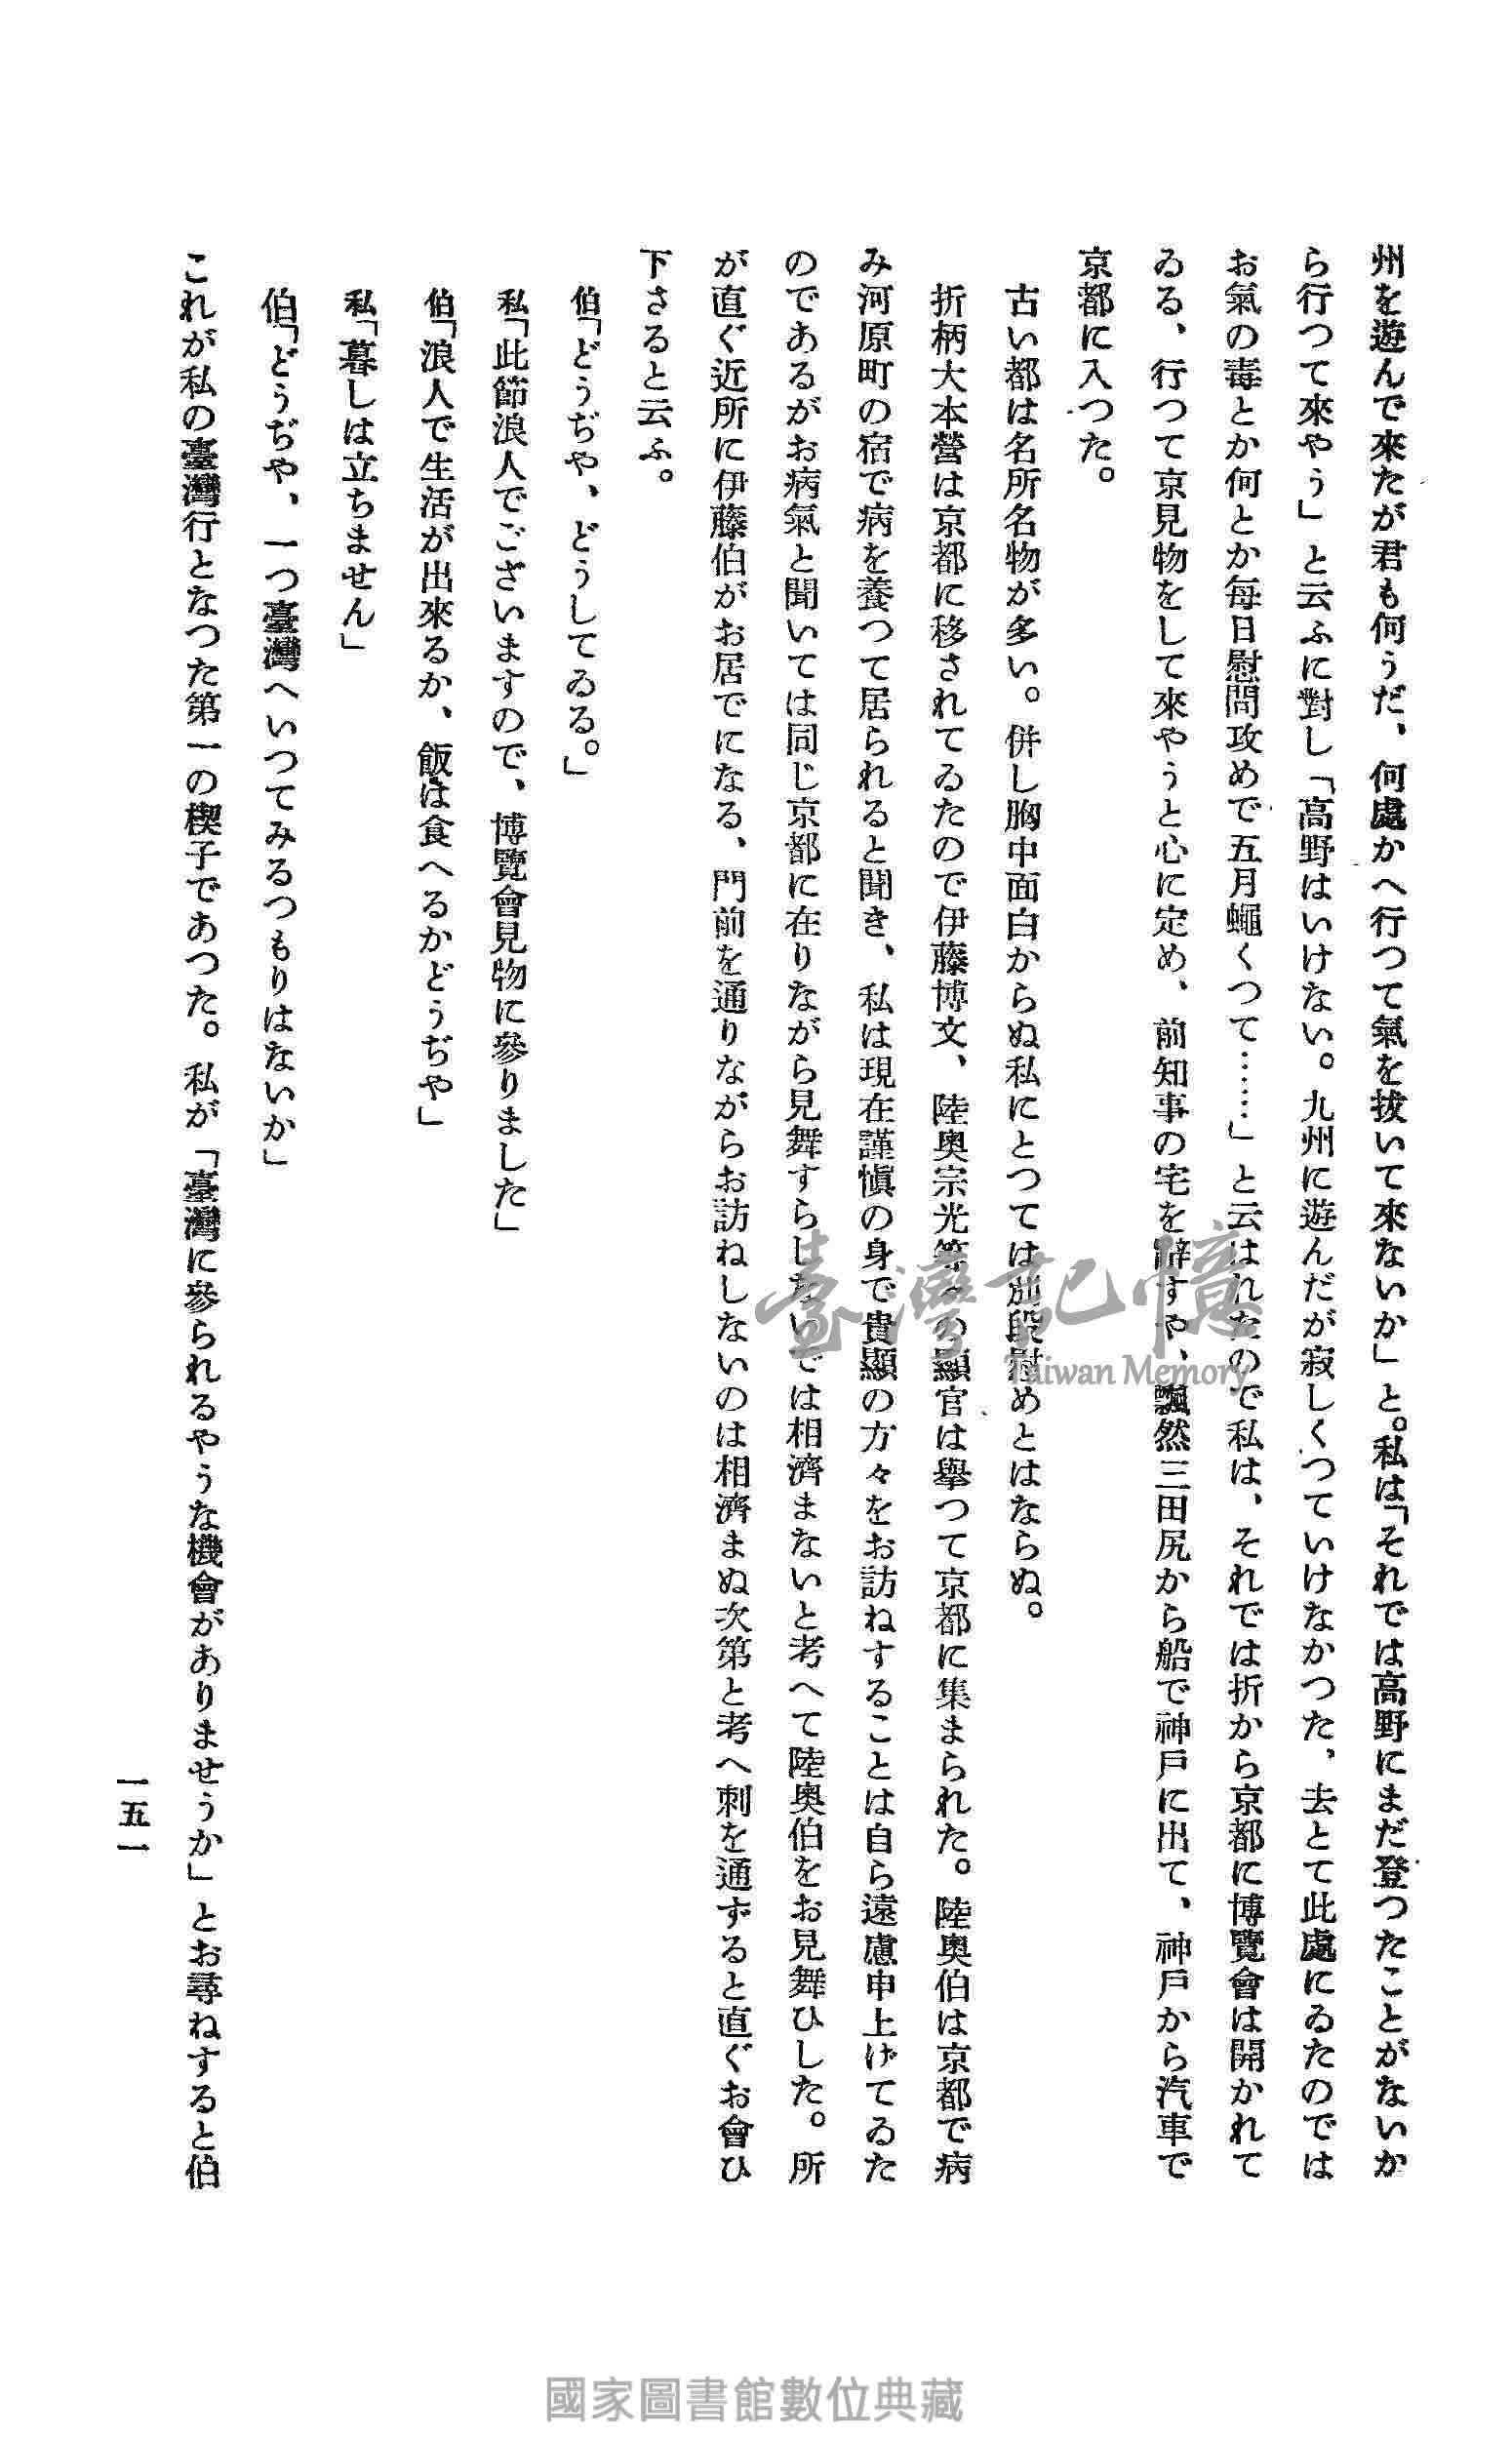 州を遊んで來たが君も何うだ、何處かへ行つて氣を拔いて來ないか」と。私は「それでは高野にまだ登つたことがないか
ら行つて來やう」と云ふに對し「高野はいけない。九州に遊んだが寂しくつていけなかつた、去とて此處にゐたのでは
お氣の毒とか何とか每日慰問攻めで五月蠅くつて……」と云はれたので私は、それでは折から京都に博覽會は開かれて
ゐる、行つて京見物をして來やうと心に定め、前知事の宅を辭すや、飄然三田尻から船で神戶に出て、神戶から汽車で
京都に入つた。
古い都は名所名物が多い。併し胸中面白からぬ私にとつては別段慰めとはならぬ。
折柄大本營は京都に移されてゐたので伊藤博文、陸奧宗光等々の顯官は擧つて京都に集まられた。陸奧伯は京都で病
み河原町の宿で病を養つて居られると聞き、私は現在謹愼の身で貴顯の方々をお訪ねすることは自ら遠慮申上げてゐた
のであるがお病氣と聞いては同じ京都に在りながら見舞すらしないでは相濟まないと考へて陸奧伯をお見舞ひした。所
が直ぐ近所に伊藤伯がお居でになる、門前を通りながらお訪ねしないのは相濟まぬ次第と考へ刺を通ずると直ぐお會ひ
下さると云ふ。
伯「どうぢや、どうしてゐる。」
私「此節浪人でございますので、博覽會見物に參りました」
伯「浪人で生活が出來るか、飯は食へるかどうぢや」
私「暮しは立ちません」
伯「どうぢや、一つ臺灣へいつてみるつもりはないか」
これが私の臺灣行となつた第一の楔子であつた。私が「臺灣に參られるやうな機會がありませうか」とお尋ねすると伯
一五一
臺灣記憶
Taiwan Memory
國家圖書館數位典藏